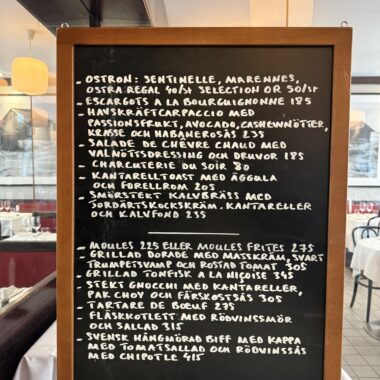 - OSTRON: SENTINELLE, MARENNES,
OSTRA REGAL 40/ST SELECTION OR 50/ST
- ESCARGOTS A LA BOURGUIGNONNE 185
- HAVSKRÄFTCARPACCIO MED
PASSIONSFRUKT, AVOCADO, CASHEWNÖTTER,
KRASSE OCH HABANEROSÅS 235
- SALADE DE CHÈVRE CHAUD MED
VALNÖTSDRESSING OCH DRUVOR 185
- CHARCUTERIE DU SOIR 80
- KANTARELLTOAST MED ÄGGULA
OCH FORELLROM 205
- SMÖRSTEKT KALVBRÄSS MED
JORDÄRTSKOCKSKRÄM, KANTARELLER
OCH KALVFOND 235
- MOULES 225 ELLER MOULES FRITES 275
- GRILLAD DORADE MED MAJSKRÄM, SVART
TRUMPETSVAMP OCH ROSTAD TOMAT 305
- GRILLAD TONFISK A LA NIÇOISE 345
- STEKT GNOCCHI MED KANTARELLER,
PAK CHOY OCH FÄRSKOSTSÅS 305
- TARTARE DE BŒUF 275
- FLÄSKKOTLETT MED RÖDVINSSMÖR
OCH SALLAD 315
- SVENSK HÄNGMÖRAD BIFF MED KAPPA
MED TOMATSALLAD OCH RÖDVINSSÅS
MED CHIPOTLE 415